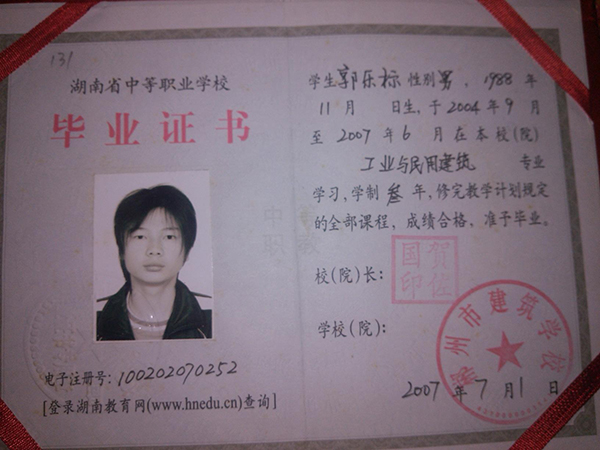 131
湖南省中等职业学校
毕业证书
电子注册号：100202070252
[登录湖南教育网(www.hnedu.cn)查询]
学生郭乐标性别男，1988年
11月 日生，于2004年9月
至2007年6月在本校(院)
工业与民用建筑 专业
学习，学制叁年，修完教学计划规定
的全部课程，成绩合格，准予毕业。
中 等
职 教
校(院)长：
贺佐
国印
学校(院)：
郴州市建筑学校
2007年7月1日